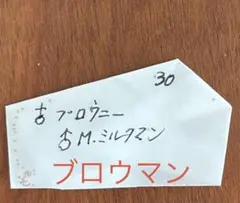 30
♁ブロウニー
♁M.ミルクマン
ブロウマン